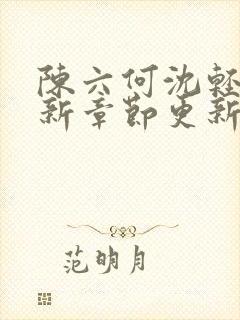 陳六何沈輕
新章節更新
范明月